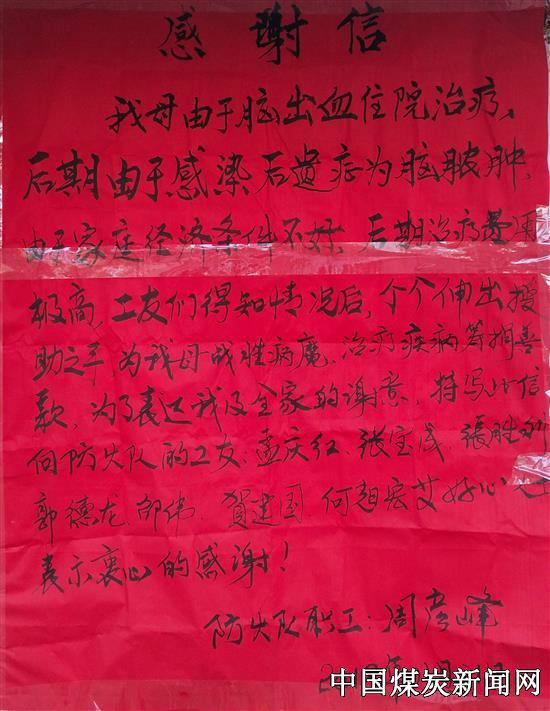 感谢信
我母由于脑出血住院治疗、
后期由于感染后遗症为脑脓肿、
由于家庭经济条件不好、后期治疗费用
极高、工友们得知情况后,个个伸出援
助之手为我母战胜病魔、治疗疾病筹捐善
款,为了表达我及全家的谢意,特写此信
向防失队的工友:孟庆红、张宝成、張胜利
郭德龙、邵伟、贺建国、何超宏艾好心人士
表示衷心的感谢!
防失队职工:周彦峰
中国煤炭新闻网